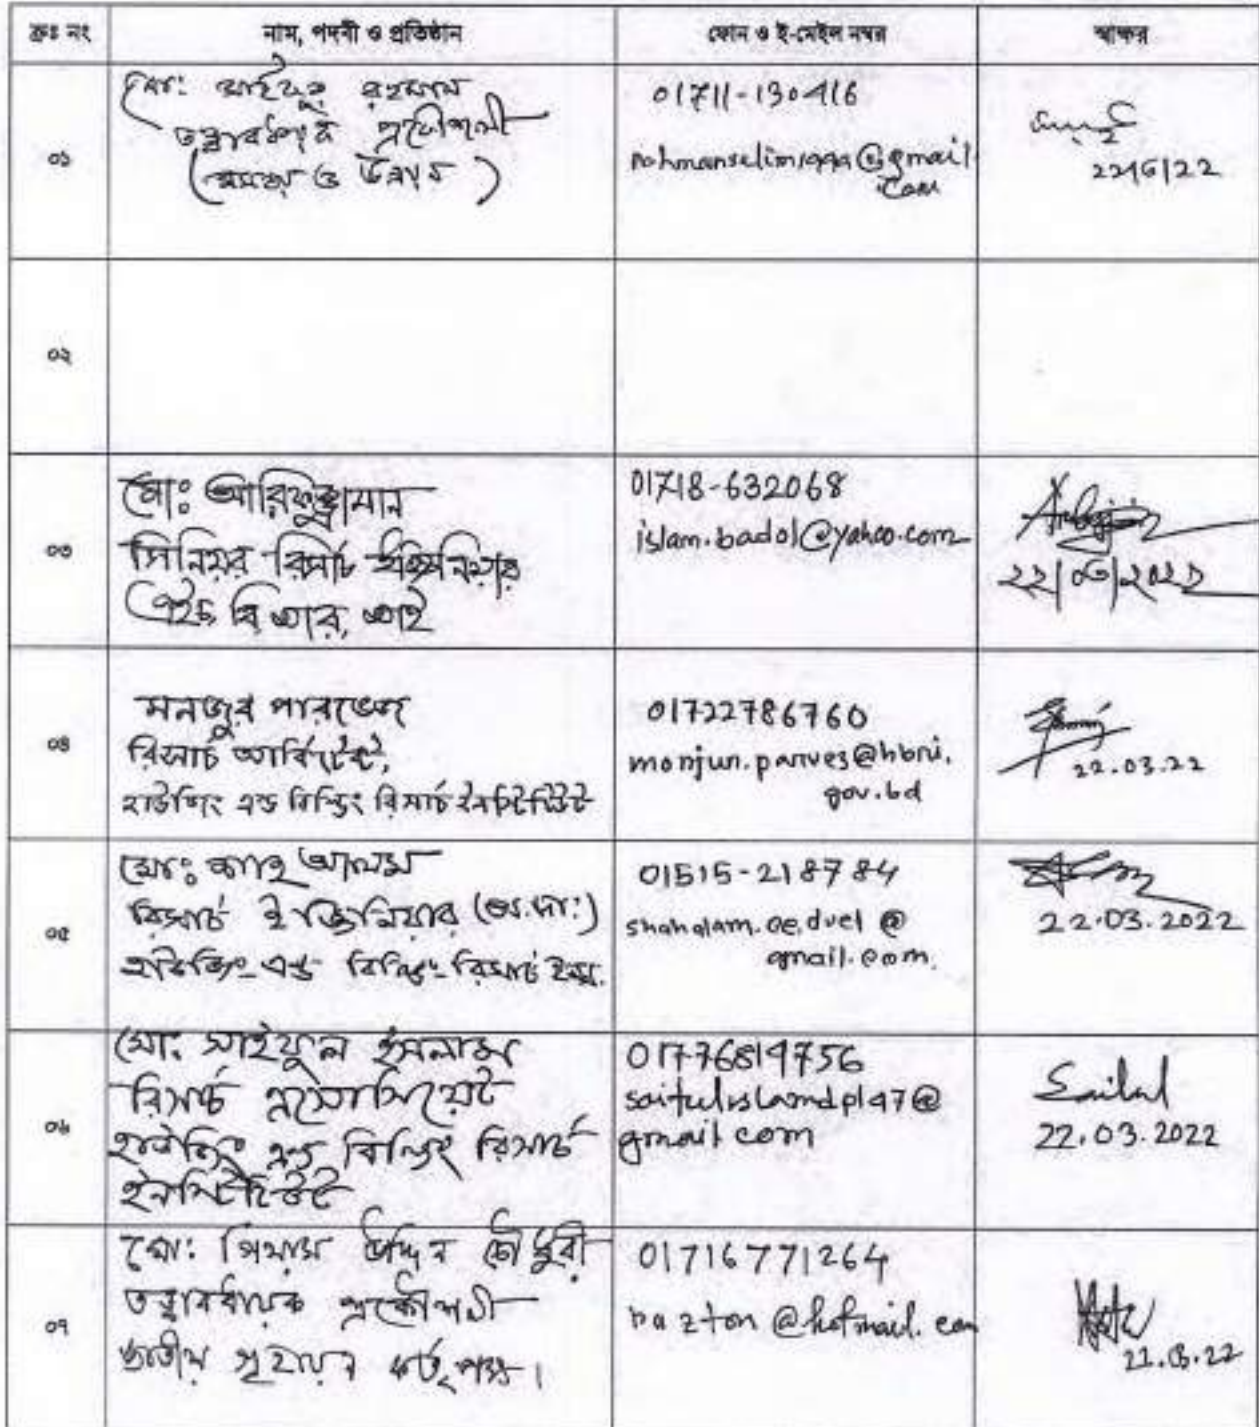 ক্রঃ নং নাম, পদবী ও প্রতিষ্ঠান ফোন ও ই-মেইল নম্বর স্বাক্ষর
০১
রহমান
তত্ত্বাবধায়ক প্রকৌশলী
(সমন্বয় ও উন্নয়ন)
01711-130416
@gmail
.com
০২
০৩
মোঃ আরিফুজ্জামান
সিনিয়র রিসার্চ ইঞ্জিনিয়ার
এইচ, বি আর, আই
01718-632068
islam.badol@yahoo.com
২২|০৩|২০২২
০৪
মনজুর পারভেজ
রিসার্চ আর্কিটেক্ট,
হাউজিং এন্ড বিল্ডিং রিসার্চ ইনস্টিটিউট
01722786760
monjur.parves@hbri.
gov.bd
22.03.22
০৫
মোঃ শাহ আলম
রিসার্চ ইঞ্জিনিয়ার (অঃ.দাঃ)
হাউজিং এন্ড বিল্ডিং রিসার্চ ইন্স.
01515-218784
shahalam.ce.duet@
gmail.com.
22.03.2022
০৬
মোঃ সাইফুল ইসলাম
রিসার্চ এসোসিয়েট
হাউজিং এন্ড বিল্ডিং রিসার্চ
ইনস্টিটিউট
01776819756
@
gmail com
Saiful
22.03.2022
০৭
মো: উদ্দিন চৌধুরী
তত্ত্বাবধায়ক প্রকৌশলী
জাতীয় গৃহায়ন কর্তৃপক্ষ।
01716771264
@hotmail.com
22.03.22